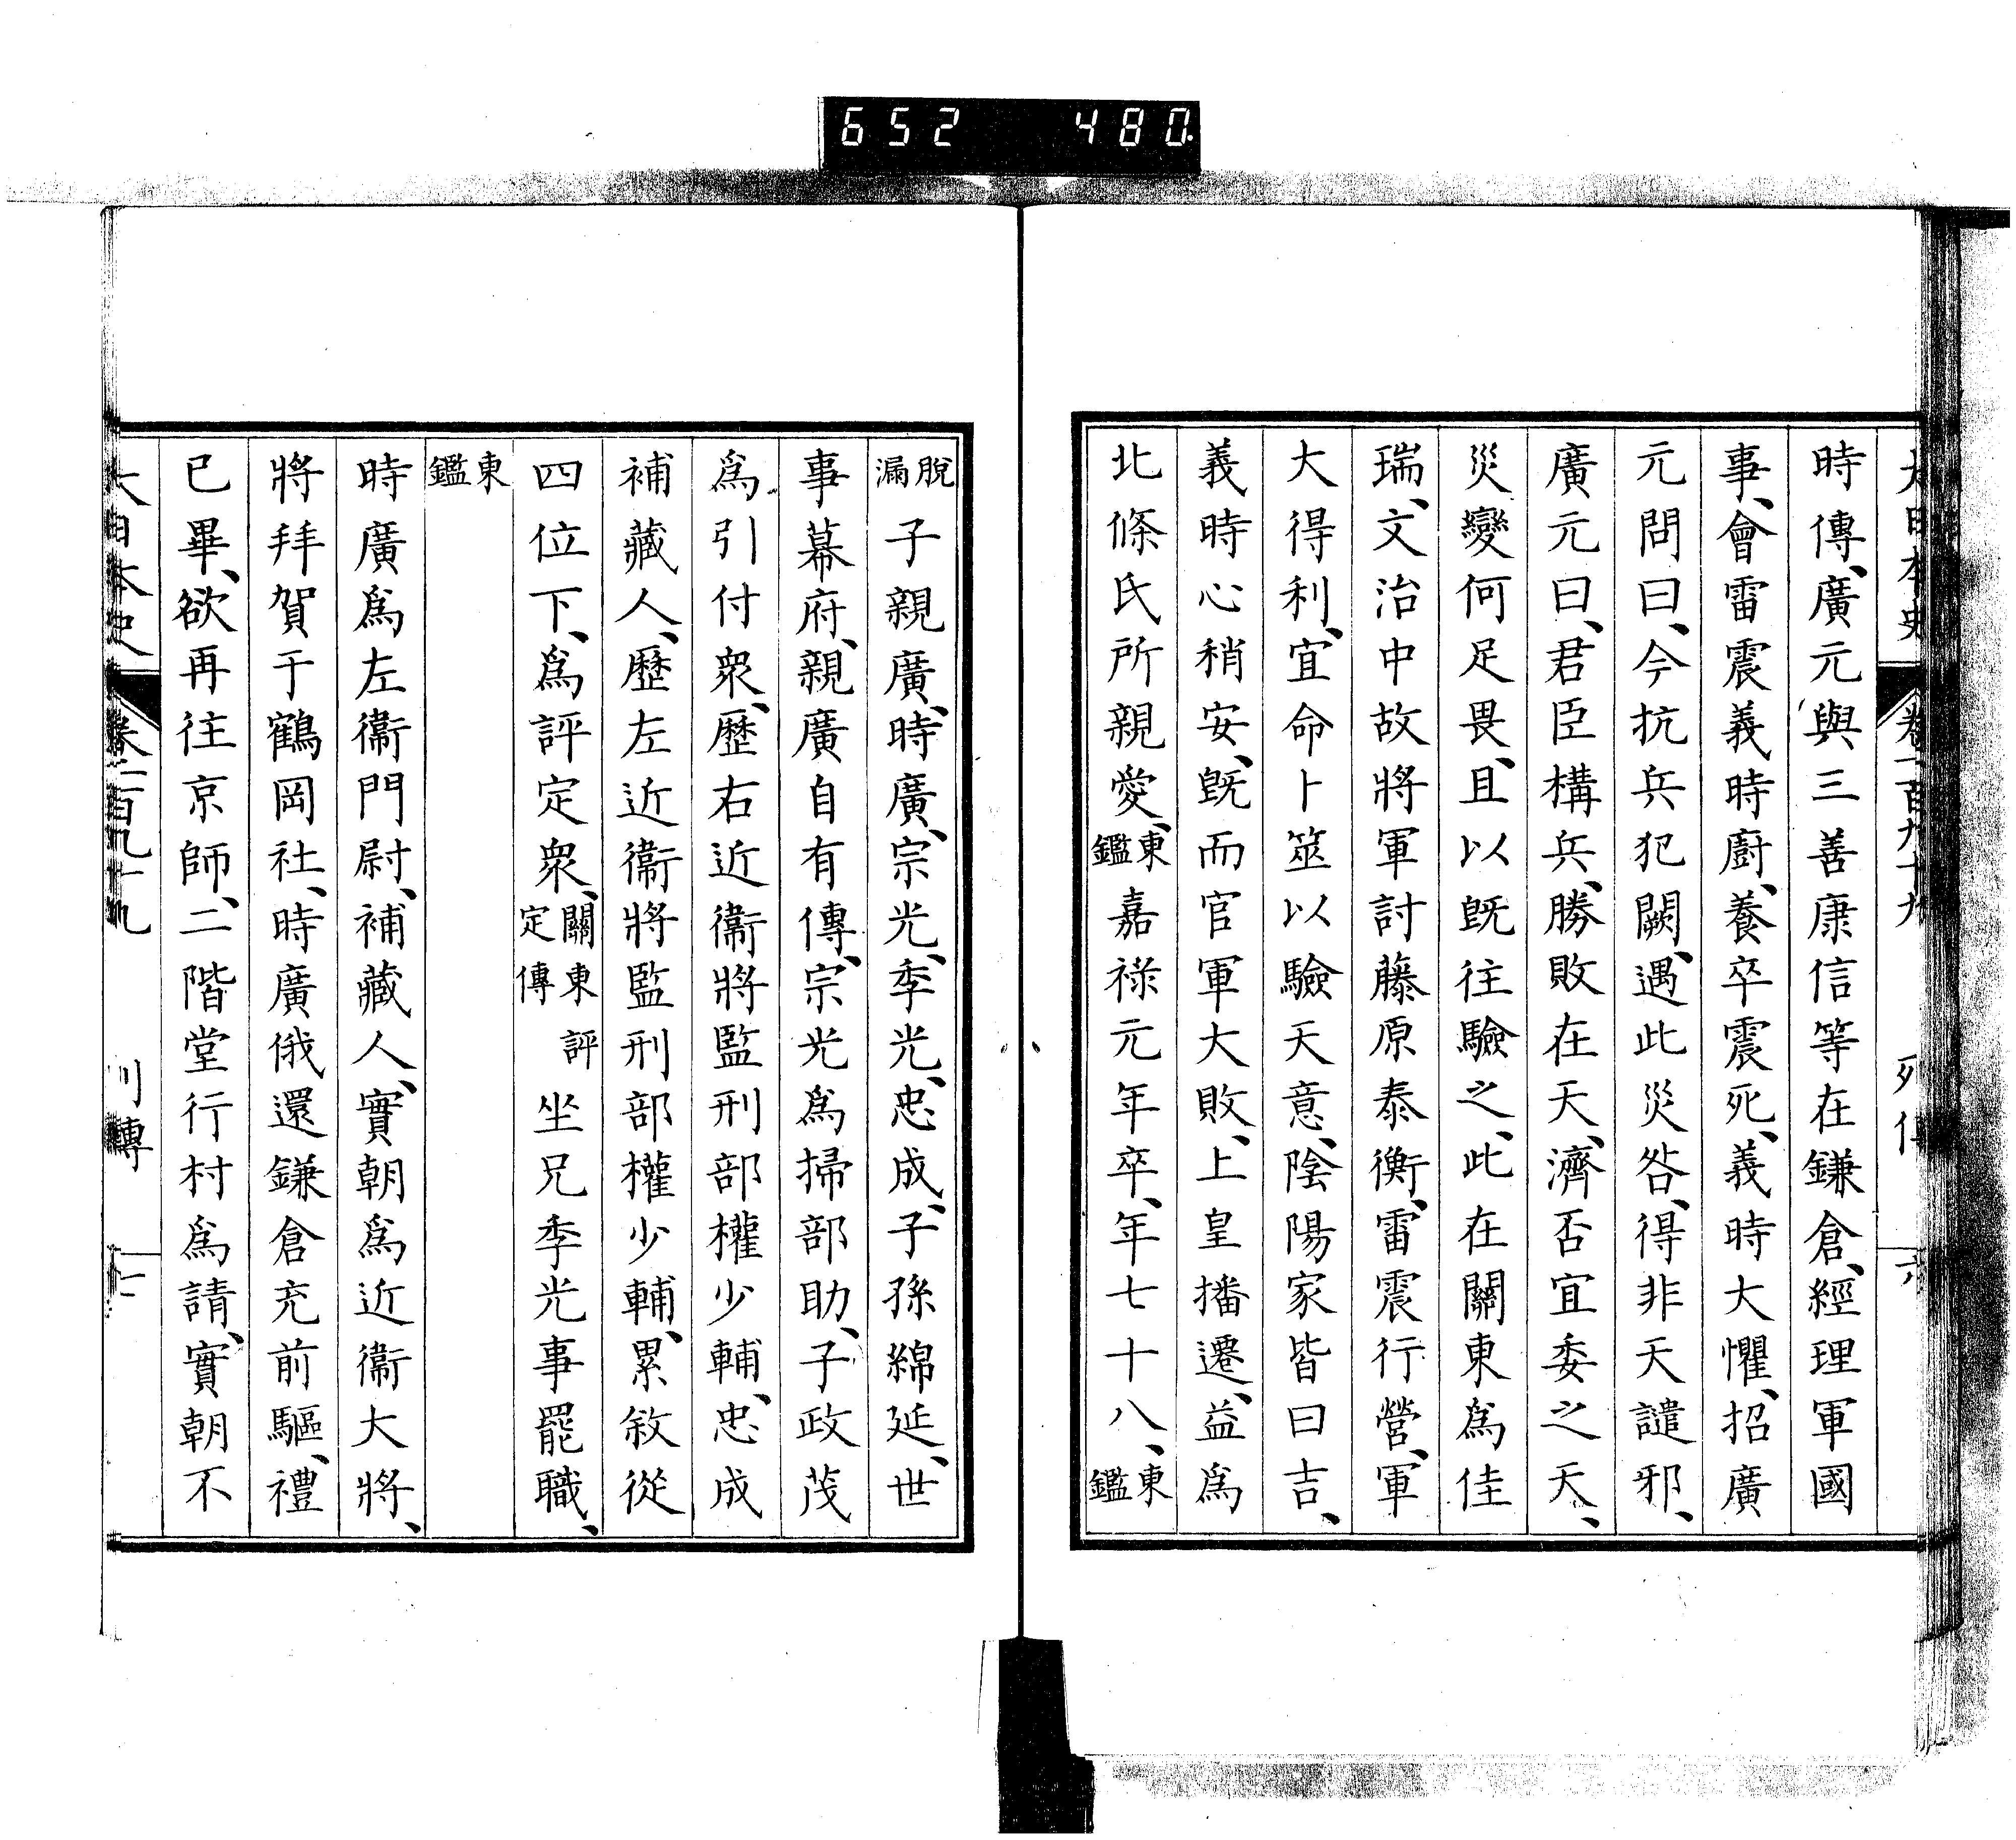 652 480
大日本史 卷一百九十九 列傳 六
時傳、廣元與三善康信等在鎌倉、經理軍國
事、會雷震義時廚、養卒震死、義時大懼、招廣
元問曰、今抗兵犯闕、遇此災咎、得非天譴邪、
廣元曰、君臣構兵、勝敗在天、濟否宜委之天、
災變何足畏、且以既往驗之、此在關東爲佳
瑞、文治中故將軍討藤原泰衡、雷震行營、軍
大得利、宜命卜筮以驗天意、陰陽家皆曰吉、
義時心稍安、既而官軍大敗、上皇播遷、益爲
北條氏所親愛、東鑑嘉祿元年卒、年七十八、東鑑
脫漏子親廣、時廣、宗光、季光、忠成、子孫綿延、世
事幕府、親廣自有傳、宗光爲掃部助、子政茂
爲引付衆、歷右近衞將監刑部權少輔、忠成
補藏人、歷左近衞將監刑部權少輔、累敘從
四位下、爲評定衆、關東評定傳坐兄季光事罷職、
東鑑
時廣爲左衞門尉、補藏人、實朝爲近衞大將、
將拜賀于鶴岡社、時廣俄還鎌倉充前驅、禮
已畢、欲再往京師、二階堂行村爲請、實朝不
大日本史 卷一百九十九 列傳 七